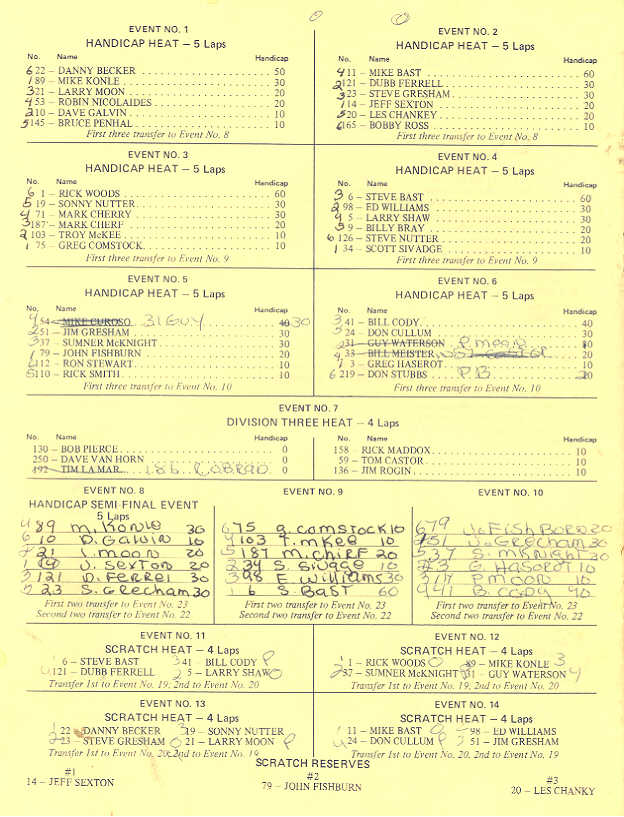 EVENT NO. 1
HANDICAP HEAT — 5 Laps
No. Name Handicap
6 22 — DANNY BECKER 50
1 89 — MIKE KONLE 30
3 21 — LARRY MOON 20
4 53 — ROBIN NICOLAIDES 20
2 10 — DAVE GALVIN 10
5 145 — BRUCE PENHAL 10
First three transfer to Event No. 8
EVENT NO. 2
HANDICAP HEAT — 5 Laps
No. Name Handicap
4 11 — MIKE BAST 60
2 121 — DUBB FERRELL 30
3 23 — STEVE GRESHAM 30
1 14 — JEFF SEXTON 20
5 20 — LES CHANKEY 20
6 165 — BOBBY ROSS 10
First three transfer to Event No. 8
EVENT NO. 3
HANDICAP HEAT — 5 Laps
No. Name Handicap
6 1 — RICK WOODS 60
5 19 — SONNY NUTTER 30
4 71 — MARK CHERRY 30
3 187 — MARK CHERF 20
2 103 — TROY McKEE 10
1 75 — GREG COMSTOCK 10
First three transfer to Event No. 9
EVENT NO. 4
HANDICAP HEAT — 5 Laps
No. Name Handicap
3 6 — STEVE BAST 60
2 98 — ED WILLIAMS 30
4 5 — LARRY SHAW 30
5 9 — BILLY BRAY 20
6 126 — STEVE NUTTER 20
1 34 — SCOTT SIVADGE 10
First three transfer to Event No. 9
EVENT NO. 5
HANDICAP HEAT — 5 Laps
No. Name Handicap
4 54 — MIKE CUROSO 31 GUY 40 30
2 51 — JIM GRESHAM 30
3 37 — SUMNER McKNIGHT 30
1 79 — JOHN FISHBURN 20
6 112 — RON STEWART 10
5 110 — RICK SMITH 10
First three transfer to Event No. 10
EVENT NO. 6
HANDICAP HEAT — 5 Laps
No. Name Handicap
3 41 — BILL CODY 40
5 24 — DON CULLUM 30
31 — GUY WATERSON P MOON 10
4 33 — BILL MEISTER
1 3 — GREG HASEROT 10
6 219 — DON STUBBS P.B 20
First three transfer to Event No. 10
EVENT NO. 7
DIVISION THREE HEAT — 4 Laps
No. Name Handicap No. Name Handicap
130 — BOB PIERCE 0
250 — DAVE VAN HORN 0
192 — TIM LA MAR 186 0
158 RICK MADDOX 10
59 — TOM CASTOR 10
136 — JIM ROGIN 10
EVENT NO. 8
HANDICAP SEMI-FINAL EVENT
5 Laps
4 89 M. KONLE 30
6 10 D. GALVIN 10
21 L. MOON 20
1 14 J. SEXTON 20
3 121 D. FERREL 30
5 23 S. GRECHAM 30
First two transfer to Event No. 23
Second two transfer to Event No. 22
EVENT NO. 9
6 75 G. COMSTOCK 10
4 103 T. MKEE 10
5 187 M. CHIRF 20
2 34 S. SIVAGE 10
3 98 E WILLIAMS 30
1 6 S. BAST 60
First two transfer to Event No. 23
Second two transfer to Event No. 22
EVENT NO. 10
6 79 J. FISHBORN 20
51 J. GRECHAM 30
5 37 S. MKNIGHT 30
3 G. HASEROT 10
317 P. MOON 10
41 B. CODY 40
First two transfer to Event No. 23
Second two transfer to Event No. 22
EVENT NO. 11
SCRATCH HEAT — 4 Laps
1 6 — STEVE BAST 3 41 BILL CODY P
121 — DUBB FERRELL 2 5 — LARRY SHAW O
Transfer 1st to Event No. 19, 2nd to Event No. 20
EVENT NO. 12
SCRATCH HEAT — 4 Laps
1 — RICK WOODS O 89 — MIKE KONLE 3
2 37 — SUMNER McKNIGHT 31 — GUY WATERSON 4
Transfer 1st to Event No. 19, 2nd to Event No. 20
EVENT NO. 13
SCRATCH HEAT — 4 Laps
22 — DANNY BECKER 3 19 — SONNY NUTTER
23 — STEVE GRESHAM O 21 — LARRY MOON P
Transfer 1st to Event No. 20, 2nd to Event No. 19
EVENT NO. 14
SCRATCH HEAT — 4 Laps
11 — MIKE BAST 98 — ED WILLIAMS
4 24 — DON CULLUM P 3 51 — JIM GRESHAM
Transfer 1st to Event No. 20, 2nd to Event No. 19
SCRATCH RESERVES
#1
14 — JEFF SEXTON
#2
79 — JOHN FISHBURN
#3
20 — LES CHANKY